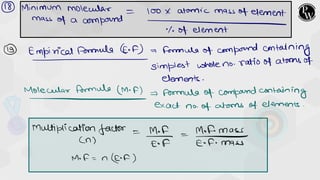 (18) Minimum molecular mass of a compound = 100 x atomic mass of element / % of element
(19) Empirical Formula (E.F) ⇒ Formula of compound containing
simplest whole no. ratio of atoms of
elements.
Molecular Formula (M.F) ⇒ Formula of compound containing
exact no. of atoms of elements.
Multiplication factor (n) = M.F / E.F = M.F. mass / E.F. mass
M.F = n (E.F)